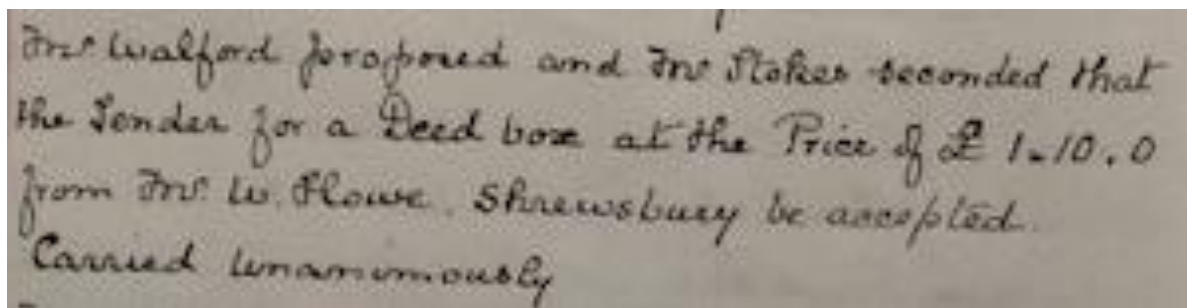 Mr Walford proposed and Mr Stokes seconded that
the Tender for a Deed box at the Price of £ 1-10.0
from Mr. W. Plowe. Shrewsbury be accepted.
Carried Unanimously